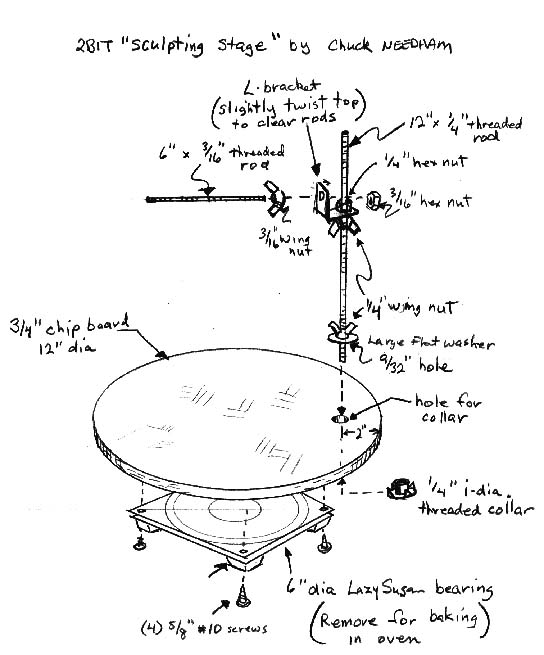 2BIT "Sculpting Stage" by Chuck NEEDHAM
L-bracket
(slightly twist top)
to clear rods
12" x 1/4" threaded
rod
6" x 3/16" threaded
rod
1/4" hex nut
3/16" hex nut
3/16" wing
nut
1/4" wing nut
3/4" chip board
12" dia
Large flat washer
9/32" hole
hole for
collar
2"
1/4" i-dia.
threaded collar
6" dia Lazy Susan bearing
(Remove for baking
in oven)
(4) 5/8" #10 screws